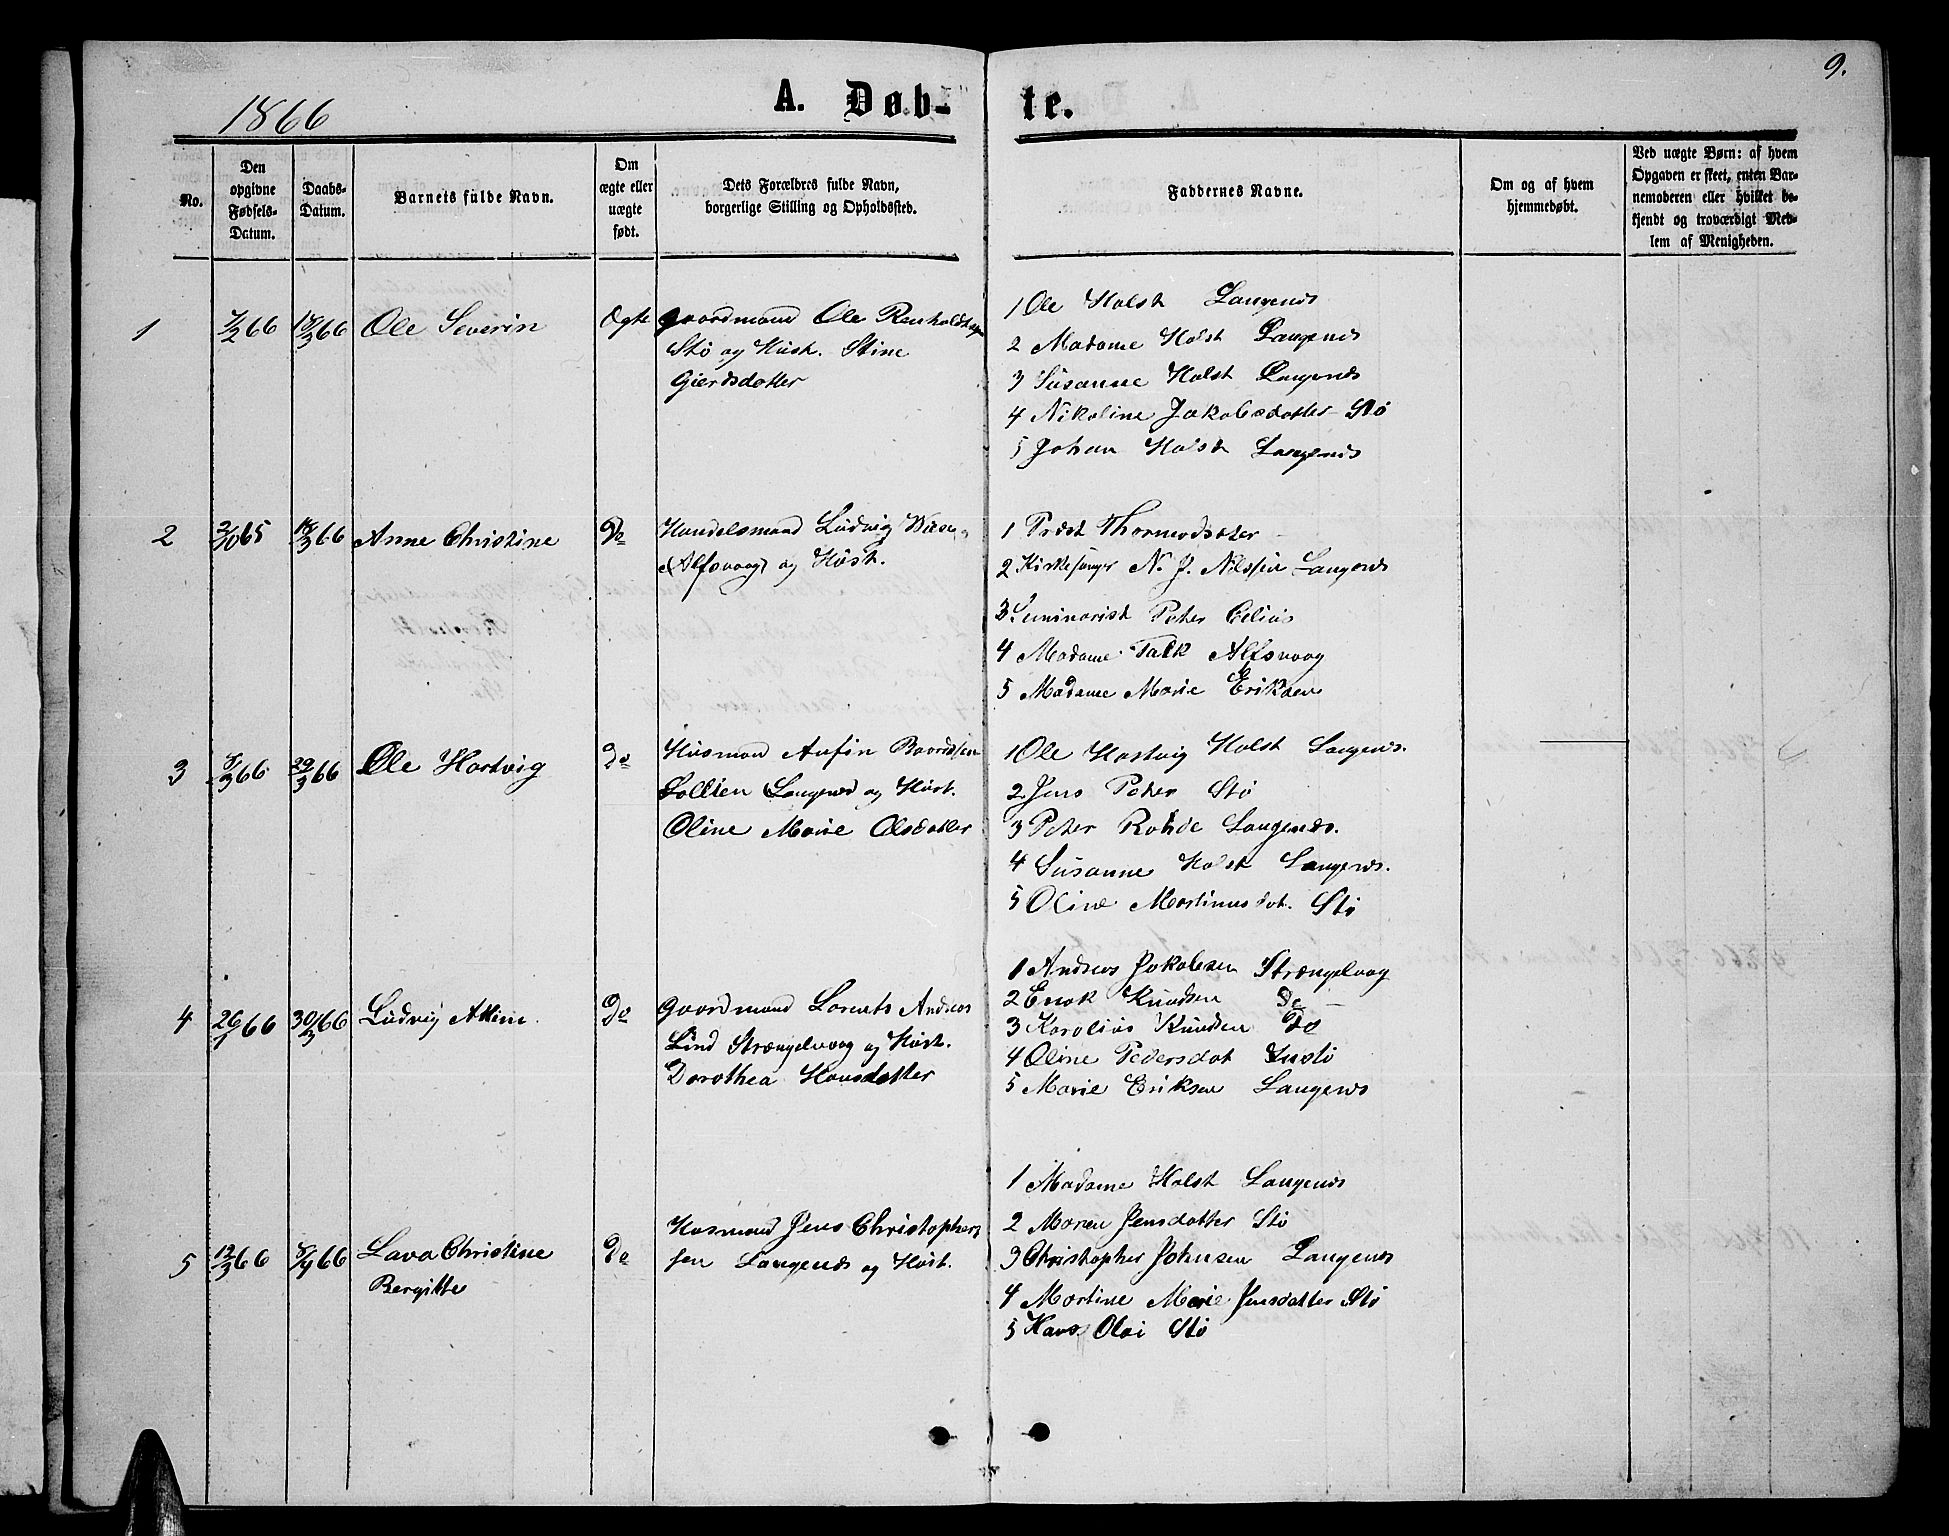 9.
1866
A. Døb-
te.
No.
Den
opgivne
Fødsels-
Datum.
Daabs-
Datum.
Barnets fulde Navn.
Om
ægte eller
uægte
født.
Dets Forældres fulde Navn,
borgerlige Stilling og Opholdssted.
Faddernes Navne.
Om og af hvem
hjemmedøbt.
Ved uægte Børn: af hvem
Opgaven er skeet, enten Bar-
nemoderen eller hvilket be-
kjendt og troværdigt Med-
lem af Menigheden.
1
7/2 66
18/3 66
Ole Severin
Ægte
Gaardmand Ole
Stø og Hust. Stine
Gierdsdatter
1 Ole Holst Langenæs
2 Madame Holst Langenæs
3 Susanne Holst Langenæs
4 Nikoline Jakobsdatter Stø
5 Johan Holst Langenæs
2
2/10 65
18/3 66
Anne Christine
Do
Handelsmand Ludvig
Alfsvaag og Hust.
1 Præst Thormodsæter
2 Kirkesanger N. J. Nilssen Langenæs
3 Seminarist Peter Elias
4 Madame Falk Alfsvaag
5 Madame Marie Eriksen
3
8/3 66
29/3 66
Ole Hartvig
Do
Husmand Anfin Baardsen
Sollien Langenæs og Hust.
Oline Marie Olsdatter
1 Ole Hartvig Holst Langenæs.
2 Jens Peter Stø
3 Peter Rohde Langenæs.
4 Susanne Holst Langenæs.
5 Oline Martinusdat. Stø
4
26/1 66
30/3 66
Ludvig Atkin
Do
Gaardmand Lorents Andreas
Lind Strængelvaag og Hust.
Dorothea Hansdatter
1 Andreas Jakobsen Strængelvaag
2 Enok Knudsen Do
3 Karolius Knudsen Do
4 Oline Pedersdat
5 Marie Eriksen Langenæs
5
12/3 66
8/4 66
Lava Christine
Bergitte
Do
Husmand Jens Christopher
sen Langenæs og Hust.
1 Madame Holst Langenæs
2 Maren Jensdatter Stø
3 Christopher Johnsen Langenæs
4 Martine Marie Jensdatter Stø
5 Hans Olai Stø